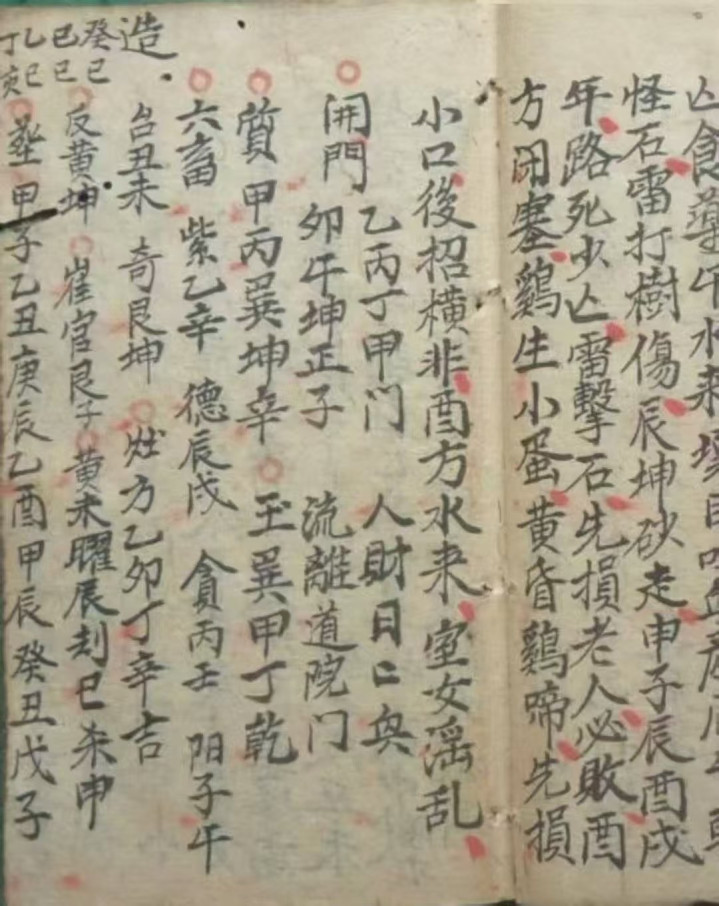 亡食藥午水来
怪石雷打樹傷辰坤砂走申子辰酉戌
年路死少亡雷擊石先損老人必敗酉
方閉塞鷄生小蛋黄昏鷄啼先損
小口後招横非酉方水来室女滛乱
開門
乙丙丁甲门 人財日亡與
卯午坤正子 流離道院门
質甲丙巽坤辛 玉巽甲丁乾
六畜 紫乙辛 德辰戌 貪丙壬 阳子午
台丑未 奇艮坤 灶方乙卯丁辛吉
造
癸巳
己巳
乙巳
丁亥
反黄坤 崔官艮子 黄未曜辰刦巳杀申
塟甲子乙丑庚辰乙酉甲辰癸丑戊子